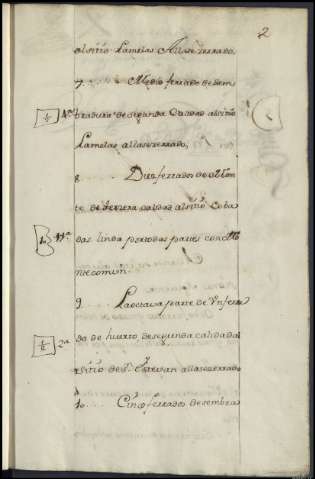 2
al sitio Lamelas Allase zerrado,
7 .... Medio ferrado de sem
1/2 4ª bradura de segunda Calidad al sitio
Lamelas allase zerrado,
8 ..... Dus ferrados de
te de tercera calidad al sitio Coba
11ª das linda por todas partes con el
nte comun.
9 .... La octaua parte de Vn ferra
1/2 2ª do de huerto de segunda calidad al
sitio de Sn. Esteuan allase zerrado
10 ... Cinco ferrados de sembra